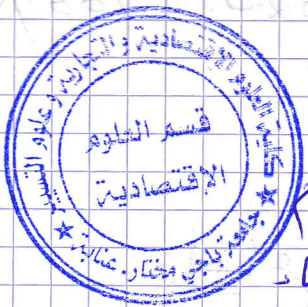 كلية العلوم الإقتصادية و التجارية و علوم التسيير
قسم العلوم
الإقتصادية
★ جامعة باجي مختار. عنابة ★